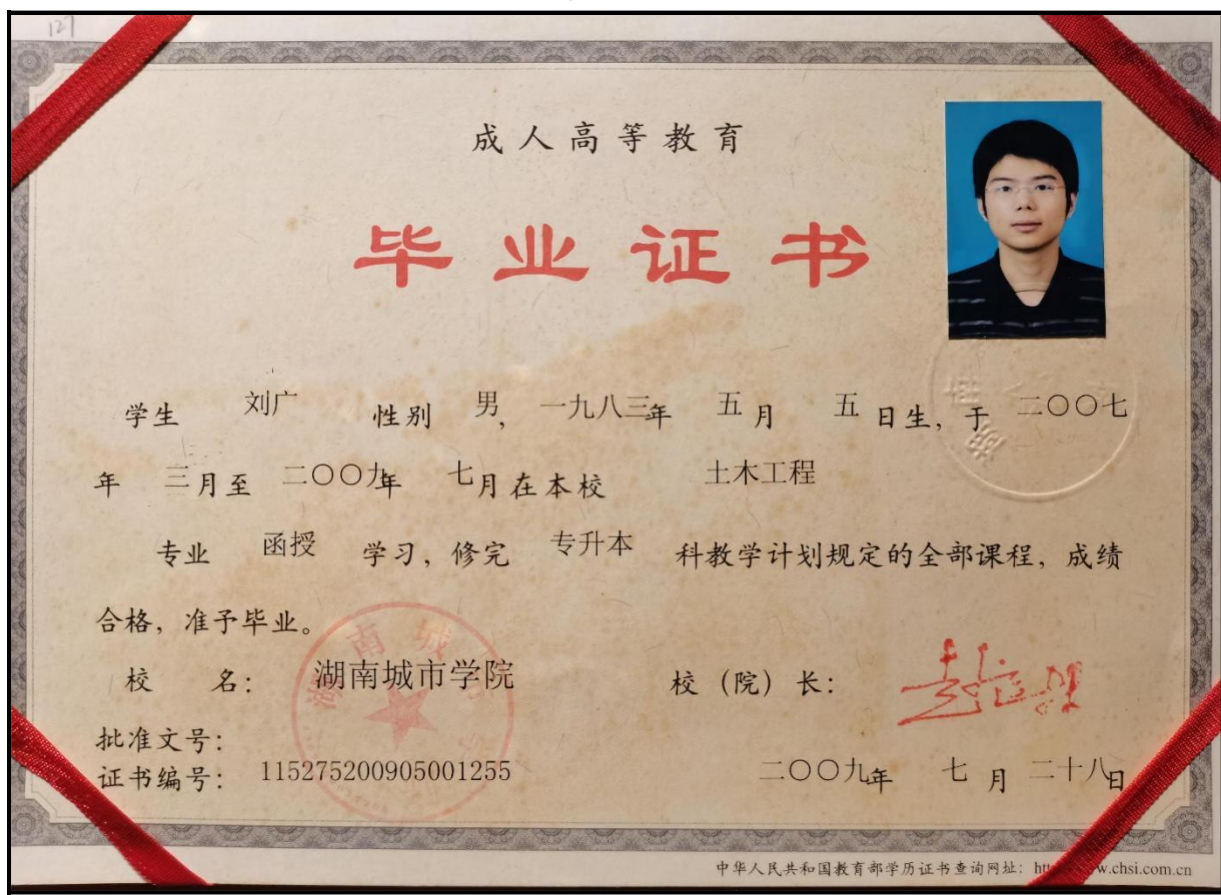 127
成人高等教育
毕业证书
学生 刘广 性别 男, 一九八三年 五月 五日生, 于 二〇〇七
年 三月至 二〇〇九年 七月在本校 土木工程
专业 函授 学习, 修完 专升本 科教学计划规定的全部课程, 成绩
合格, 准予毕业。
校 名: 湖南城市学院 校 (院) 长:
批准文号:
证书编号: 115275200905001255 二〇〇九年 七月 二十八日
中华人民共和国教育部学历证书查询网址: w.chsi.com.cn